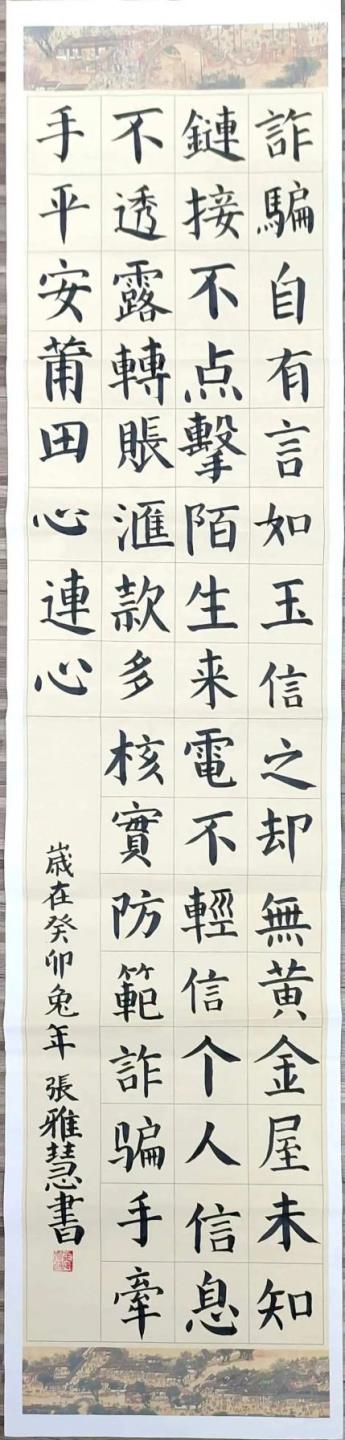 詐騙自有言如玉信之却無黃金屋未知
鏈接不点擊陌生来電不輕信个人信息
不透露轉賬滙款多核實防範詐骗手牽
手平安莆田心連心
歲在癸卯兔年張雅慧書